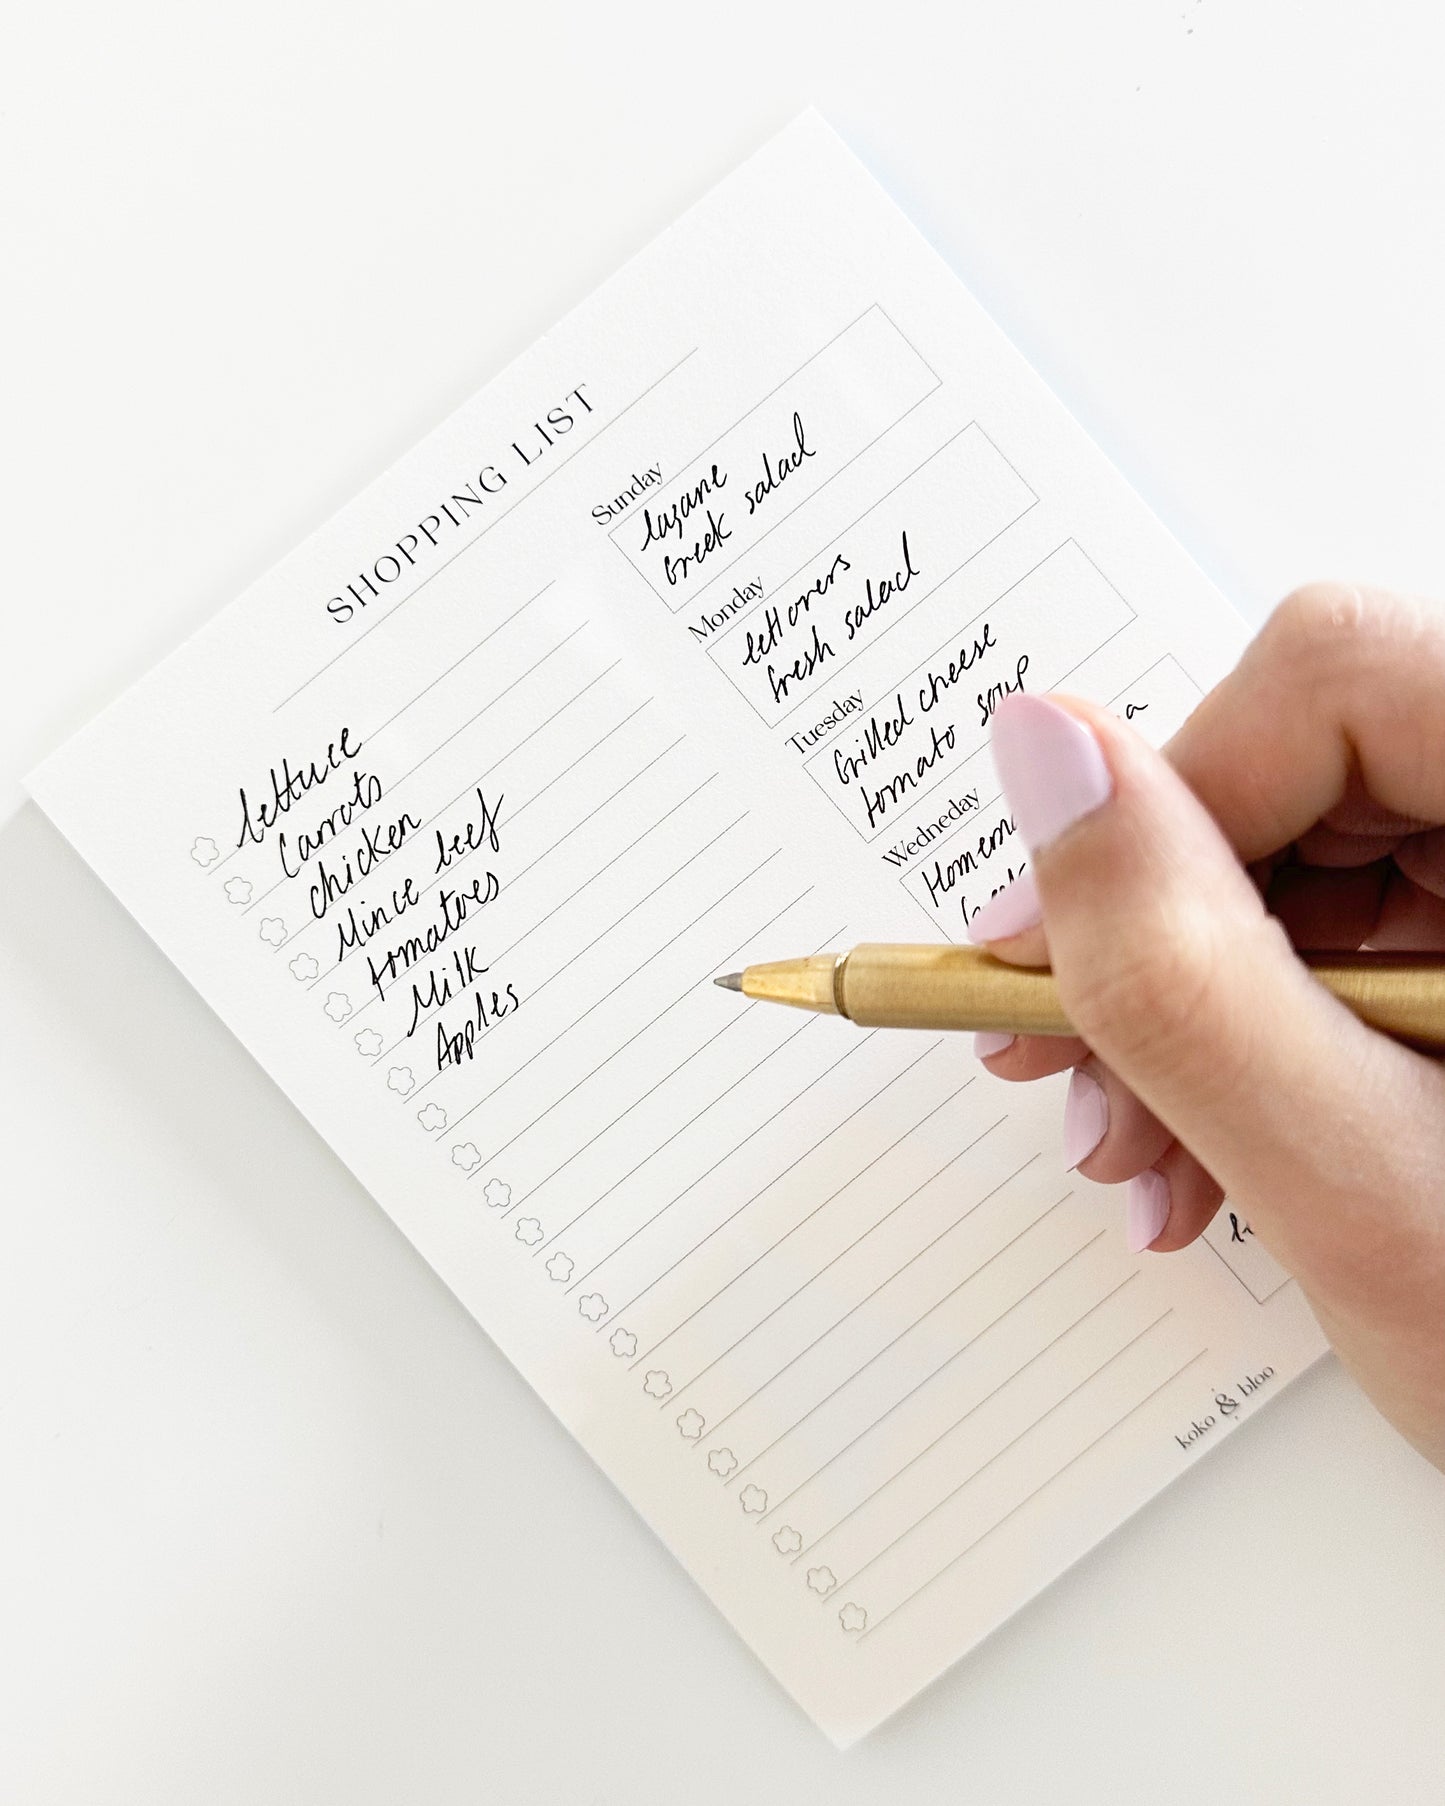 SHOPPING LIST
lettuce
Carrots
chicken
Mince beef
tomatoes
Milk
Apples
Sunday
lazane
Greek salad
Monday
leftovers
fresh salad
Tuesday
Grilled cheese
tomato soup
Wedneday
koko & bloo